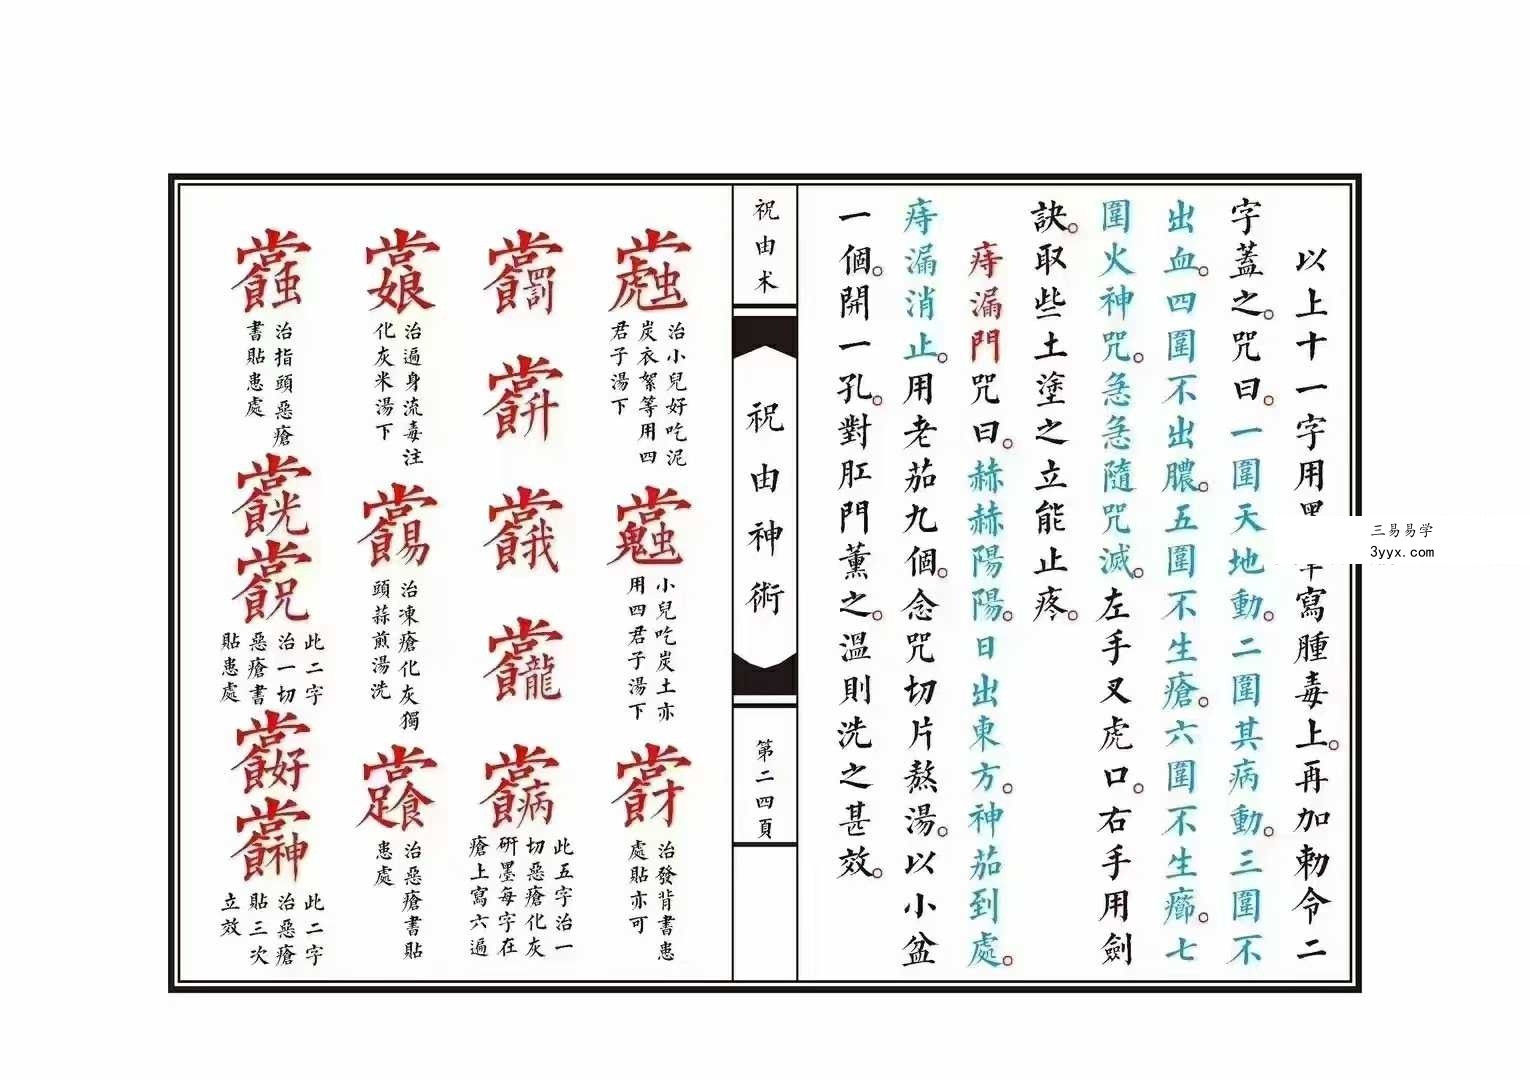 以上十一字用寫腫毒上。再加勅令二
字蓋之。咒曰。一圍天地動。二圍其病動。三圍不
出血。四圍不出膿。五圍不生瘡。六圍不生癤。七
圍火神咒。急急隨咒滅。左手叉虎口。右手用劍
訣。取些土塗之立能止疼。
痔漏門咒曰。赫赫陽陽。日出東方。神茄到處。
痔漏消止。用老茄九個。念咒切片熬湯。以小盆
一個。開一孔。對肛門薰之。溫則洗之甚效。
祝由术
祝由神術
第二四頁
治小兒好吃泥
炭衣絮等用四
君子湯下
小兒吃炭土亦
用四君子湯下
治發背書患
處貼亦可
此五字治一
切惡瘡化灰
研墨每字在
瘡上寫六遍
治遍身流毒注
化灰米湯下
治凍瘡化灰獨
頭蒜煎湯洗
治惡瘡書貼
患處
治指頭惡瘡
書貼患處
此二字
治一切
惡瘡書
貼患處
此二字
治惡瘡
貼三次
立效
三易易学
3yyx.com